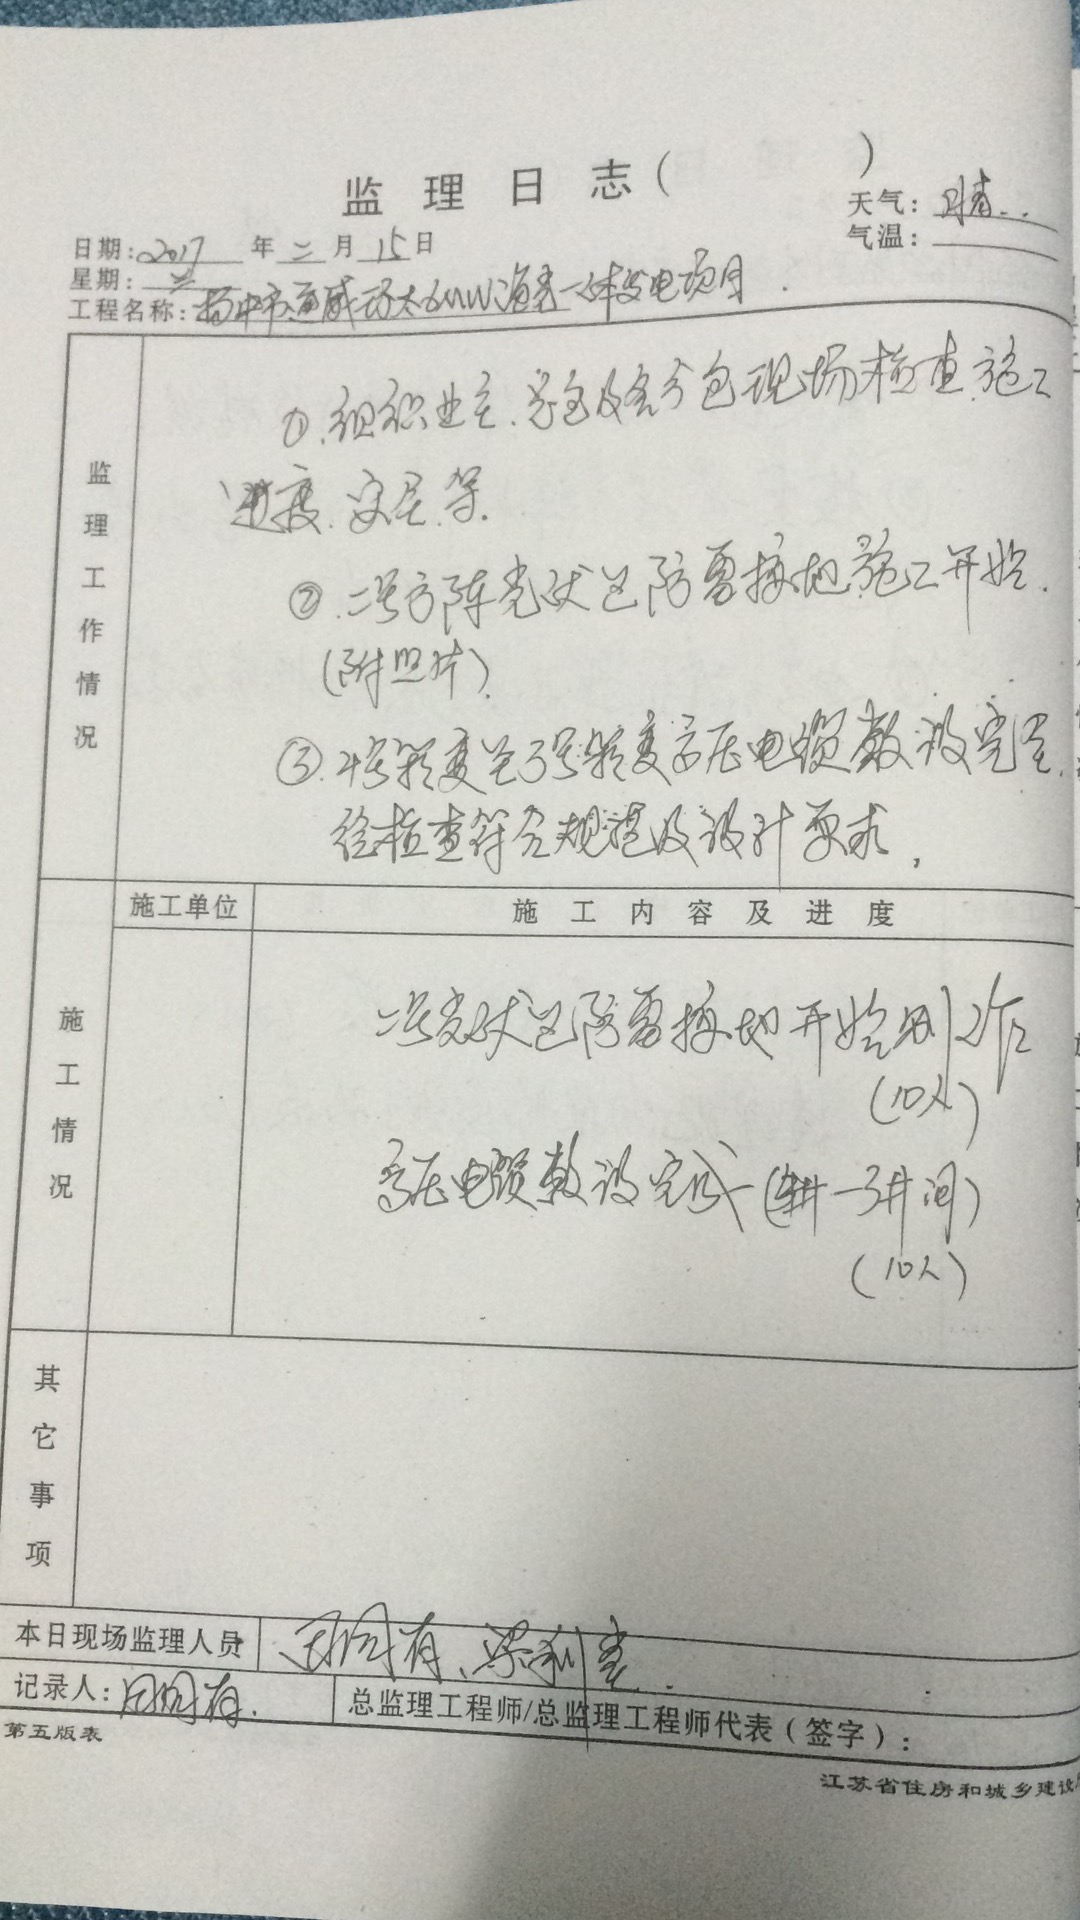 监理日志（ ）
天气：晴
日期：2017年二月15日
气温：
星期：三
工程名称：扬中市通威 一体发电项目
①.组织业主.总包及各分包现场检查.施工
进度.安全.等.
②.二号方阵光伏区防雷接地施工开始.
(附照片).
③.4号箱变至3号箱变高压电缆敷设完呈.
经检查符合规范及设计要求.
监理工作情况
施工单位
施工内容及进度
二号光伏区防雷接地开始 工作
(10人)
高压电缆敷设完成 一3井间)
(10人)
施工情况
其它事项
本日现场监理人员
记录人：
总监理工程师/总监理工程师代表（签字）：
第五版表
江苏省住房和城乡建设